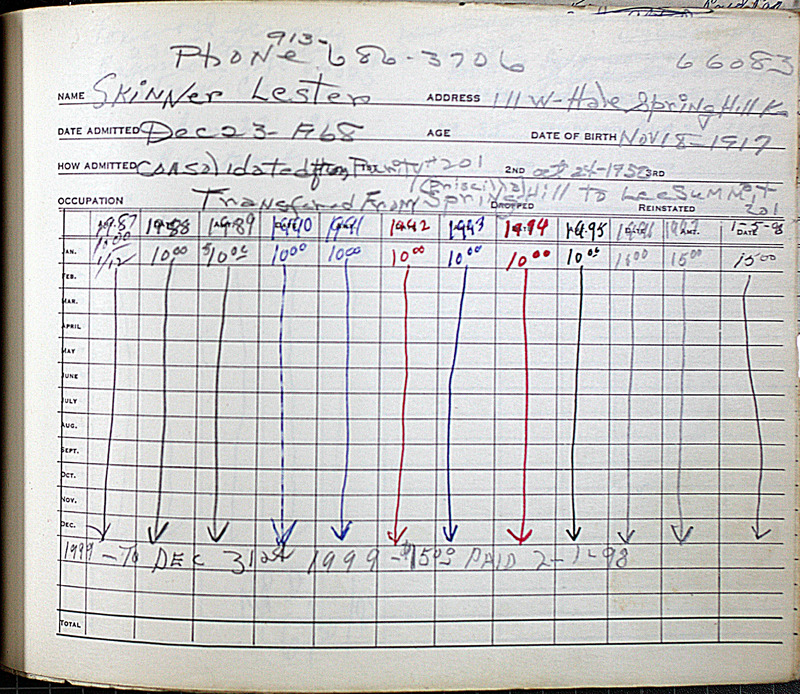 PHONE 913-686-3706 66083
NAME Skinner Lester ADDRESS 111 W-Hale Spring Hill K
DATE ADMITTED Dec 23-1968 AGE DATE OF BIRTH Nov 18-1917
HOW ADMITTED Consolidated from Purity #201 2ND Oct 24-1952 3RD
OCCUPATION Transferred From (Priscilla) Spring Hill to Lee Summit 201
DROPPED REINSTATED
1987 1988 1989 1990 1991 1992 1993 1994 1995 1996 DATE 1997 AMT. 1-5-98 DATE
JAN. 10.00 1/12 10 00 $10 00 10 00 10 00 10 00 10 00 10 00 10 00 15 00 15 00 15 00
FEB.
MAR.
APRIL
MAY
JUNE
JULY
AUG.
SEPT.
OCT.
NOV.
DEC.
1999 - TO DEC 31st 1999 - $15 00 PAID 2-1-98
TOTAL